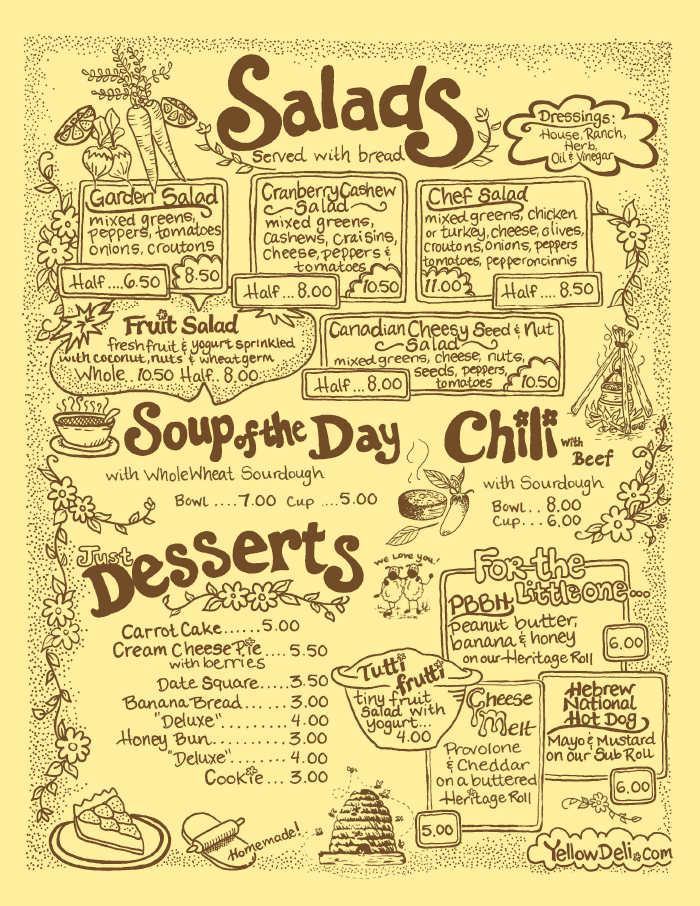 Salads
Served with bread
Dressings:
House, Ranch,
Herb,
Oil & Vinegar
Garden Salad
mixed greens,
peppers, tomatoes
onions, croutons
Half....6.50
8.50
Cranberry Cashew
Salad
mixed greens,
Cashews, Craisins,
cheese, peppers &
tomatoes
Half... 8.00
10.50
Chef Salad
mixed greens, chicken
or turkey, cheese, olives,
croutons, onions, peppers
tomatoes, pepperoncinnis
11.00
Half... 8.50
Fruit Salad
fresh fruit & yogurt sprinkled
with coconut, nuts & wheat germ
Whole 10.50 Half.. 8.00
Canadian Cheesy Seed & Nut
Salad
mixed greens, cheese, nuts,
seeds, peppers,
tomatoes
Half...8.00
10.50
Soup of the Day
with Whole Wheat Sourdough
Bowl ....7.00 Cup ....5.00
Chili with Beef
with Sourdough
Bowl... 8.00
Cup... 6.00
Just
Desserts
Carrot Cake......5.00
Cream Cheese Pie....5.50
with berries
Date Square.....3.50
Banana Bread.... 3.00
"Deluxe"........ 4.00
Honey Bun........ 3.00
"Deluxe"........ 4.00
Cookie... 3.00
We Love you!
Tutti
frutti
tiny fruit
salad with
yogurt...
4.00
For the
Little one...
PBBH,
peanut butter,
banana & honey
on our Heritage Roll
6.00
Cheese
Melt
Provolone
& Cheddar
on a buttered
Heritage Roll
5.00
Hebrew
National
Hot Dog
Mayo & Mustard
on our Sub Roll
6.00
Homemade!
YellowDeli.com